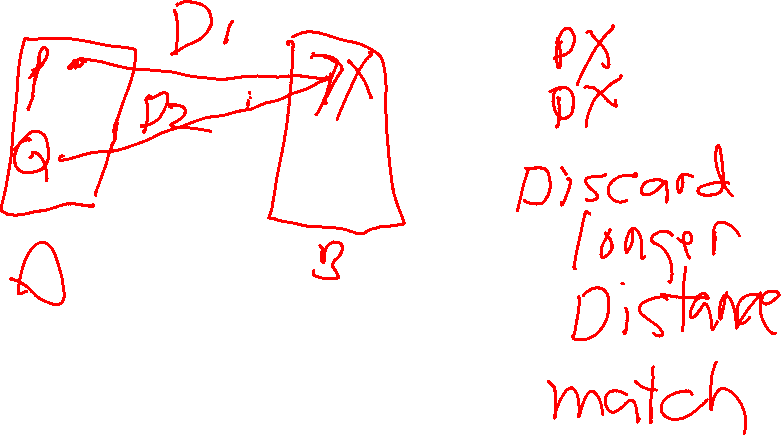 D1
P
X
D2
Q
A
B
PX
DX
Discard
longer
Distance
match